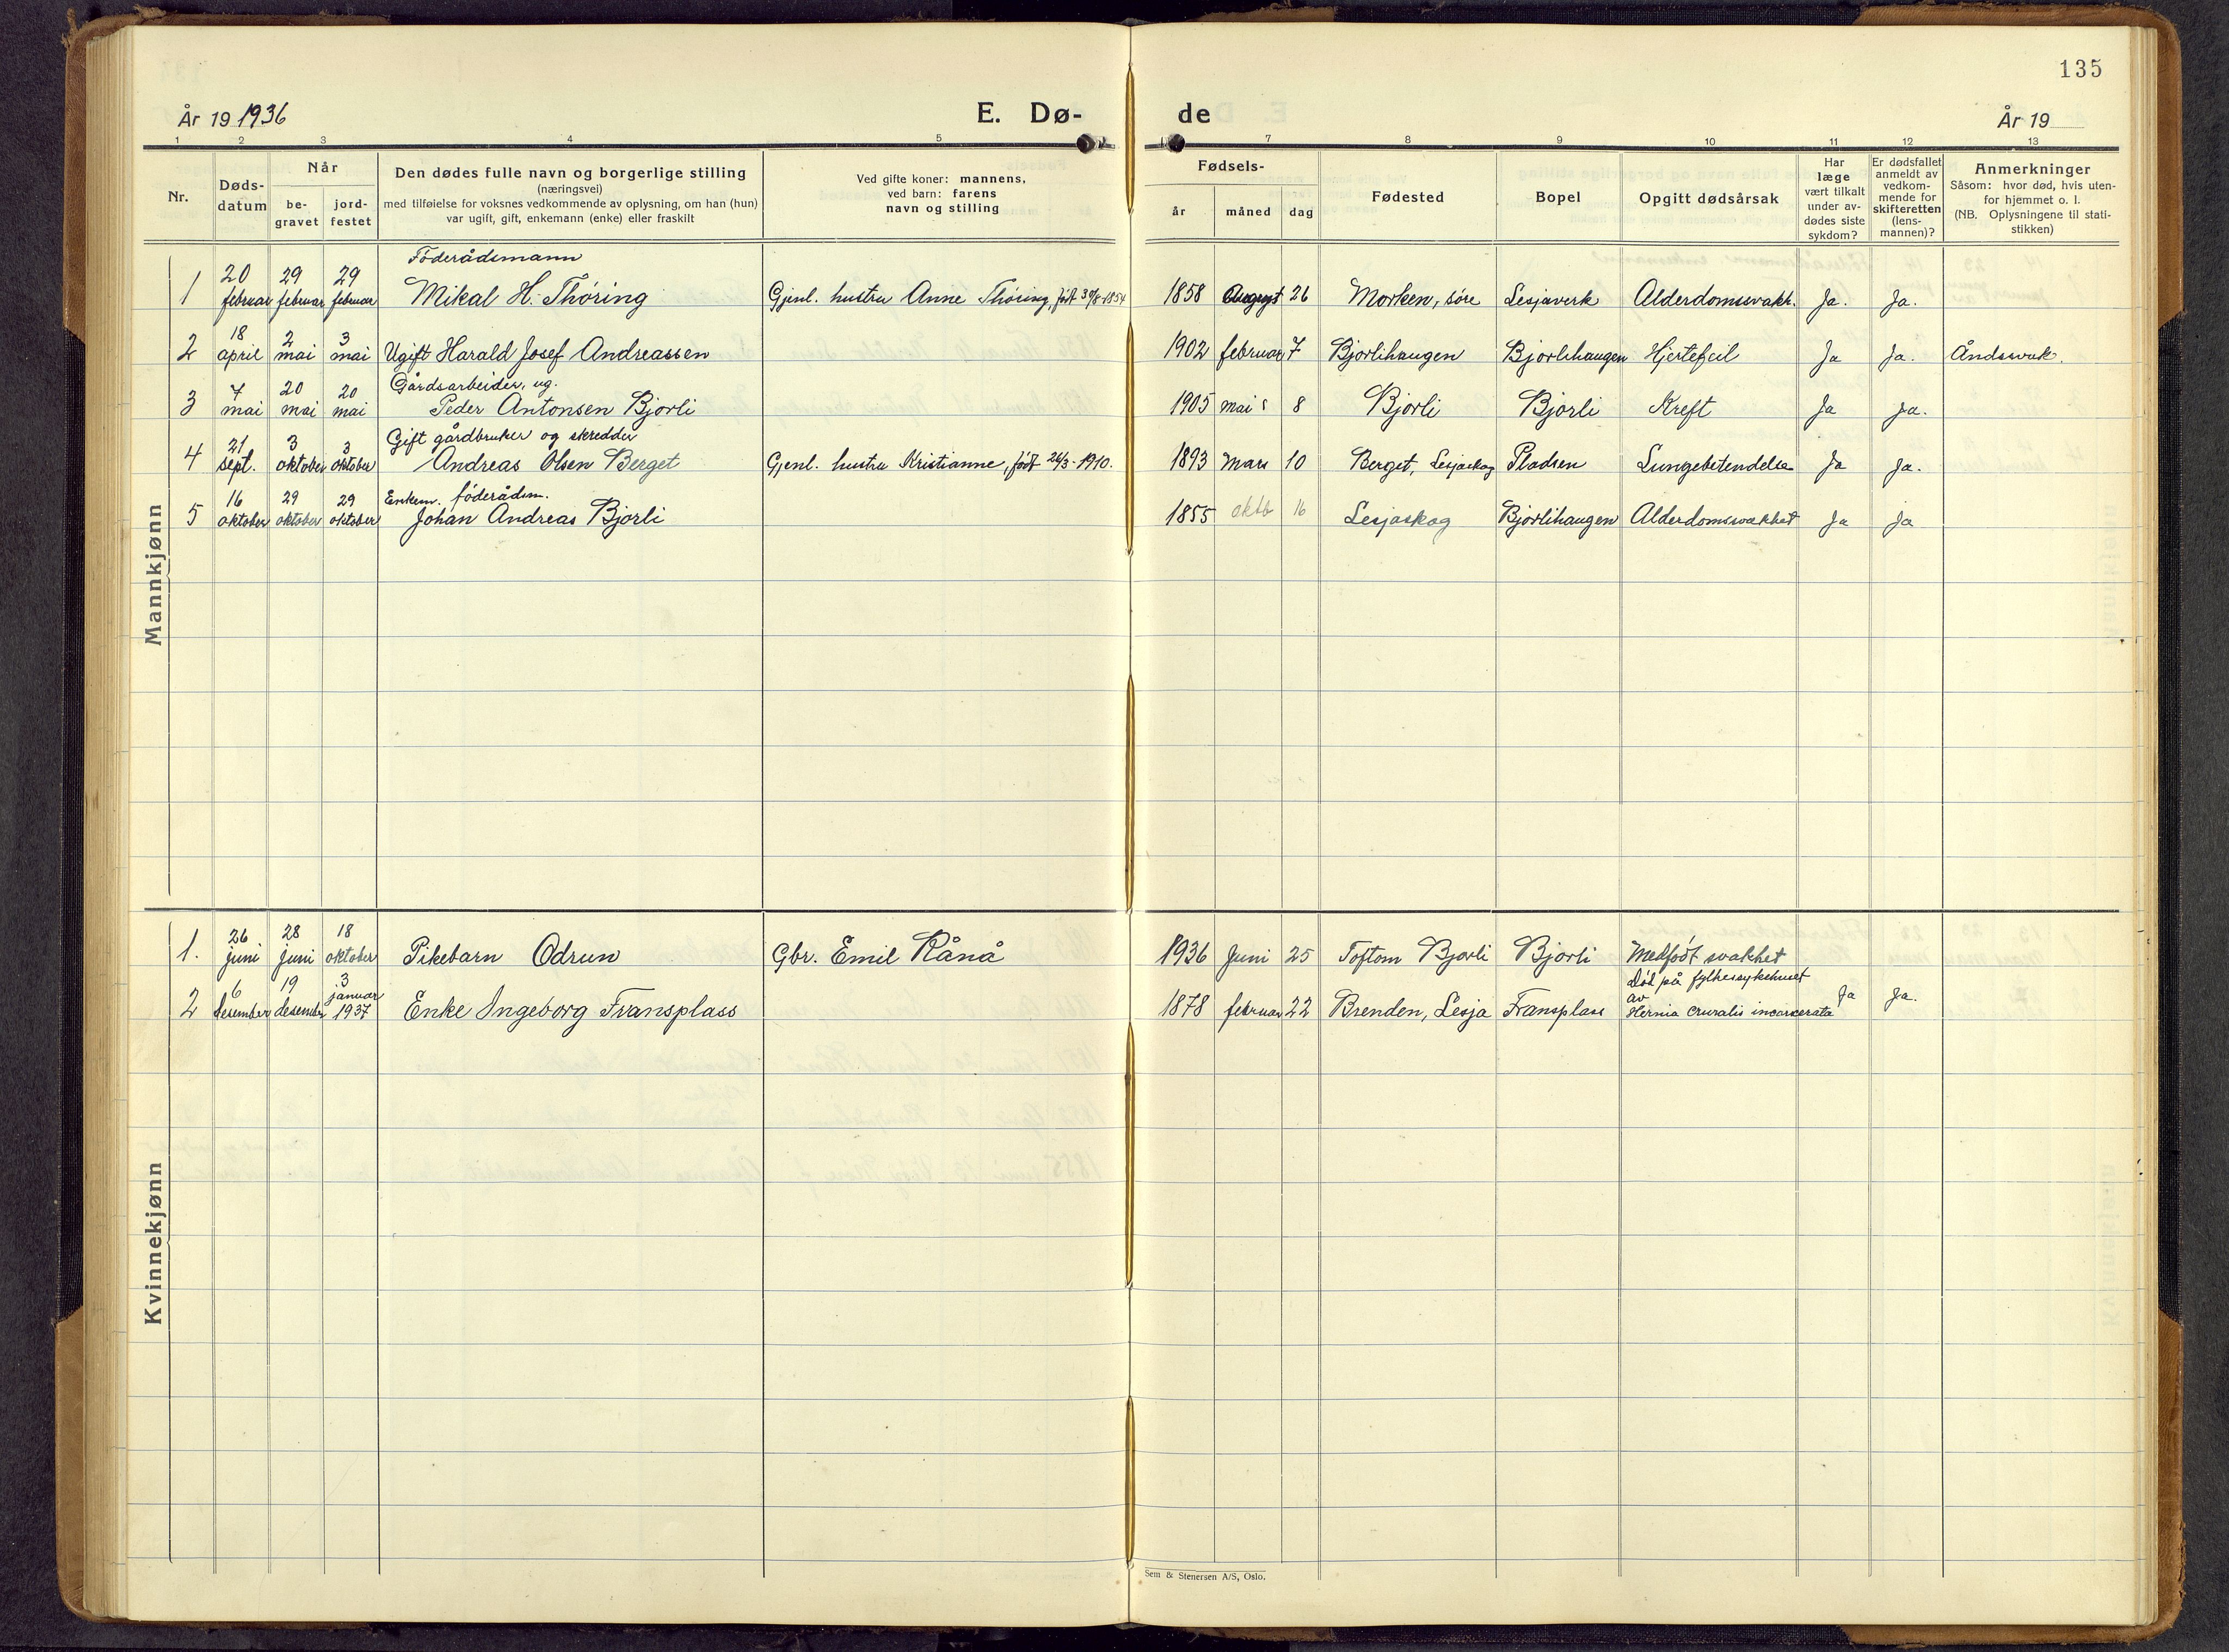 135
År 19 1936
E. Dø-
de
År 19
1 2 3 4 5 7 8 9 10 11 12 13
Nr.
Døds-
datum
Når
be-
gravet
jord-
festet
Den dødes fulle navn og borgerlige stilling
(næringsvei)
med tilføielse for voksnes vedkommende av oplysning, om han (hun)
var ugift, gift, enkemann (enke) eller fraskilt
Ved gifte koner: mannens,
ved barn: farens
navn og stilling
Fødsels-
år måned dag
Fødested
Bopel
Opgitt dødsårsak
Har
læge
vært tilkalt
under av-
dødes siste
sykdom?
Er dødsfallet
anmeldt av
vedkom-
mende for
skifteretten
(lens-
mannen)?
Anmerkninger
Såsom: hvor død, hvis uten-
for hjemmet o. l.
(NB. Oplysningene til stati-
stikken)
Mannkjønn
Föderådsmann
1 20 februar 29 februar 29 februar Mikal H. Thöring Gjenl. hustru Anne Thöring, født 30/8 1854 1858 August 26 Morken, søre Lesjaverk Alderdomssvakh. Ja. Ja.
2 18 april 2 mai 3 mai Ugift Harald Josef Andreassen 1902 februar 7 Bjorlihaugen Bjorlihaugen Hjertefeil Ja Ja. Åndssvak.
Gårdsarbeider, ug.
3 7 mai 20 mai 20 mai Peder Antonsen Bjorli 1905 mai 8 Bjorli Bjorli Kreft Ja Ja.
Gift gårdbruker og skredder
4 21 sept. 3 oktober 3 oktober Andreas Olsen Berget Gjenl. hustru Kristianne, født 26/3 - 1910. 1893 Mars 10 Berget, Lesjaskog Pladsen Lungebetendelse Ja Ja.
Enkem. föderådsm.
5 16 oktober 29 oktober 29 oktober Johan Andreas Bjorli 1855 oktb 16 Lesjaskog Bjorlihaugen Alderdomssvakhet Ja Ja
Kvinnekjønn
1. 26 juni 28 juni 18 oktober Pikebarn Odrun Gbr. Emil Rånå 1936 Juni 25 Toftom Bjorli Bjorli Medfödt svakhet
Död på fylkessykehuset
av
2 6 desember 19 desember 3 januar 1937 Enke Ingeborg Fransplass 1878 februar 22 Brenden, Lesja Fransplass Hernia cruralis incarcerata Ja Ja.
Sem & Stenersen A/S, Oslo.